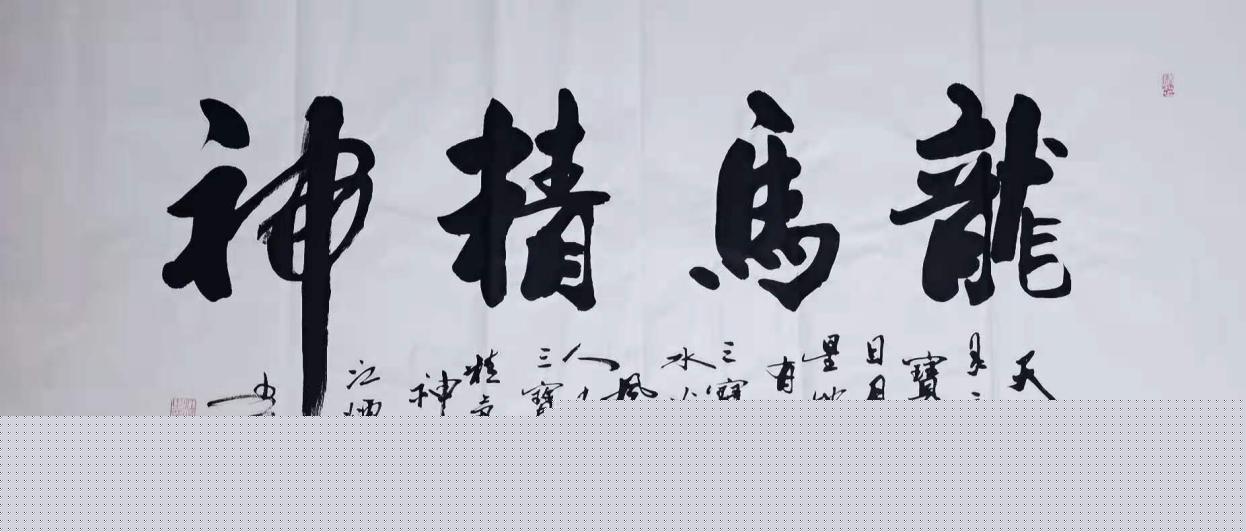 龍馬精神
天
寶
日月
星
有
三寶
水
風
人
三寶
精
神
江